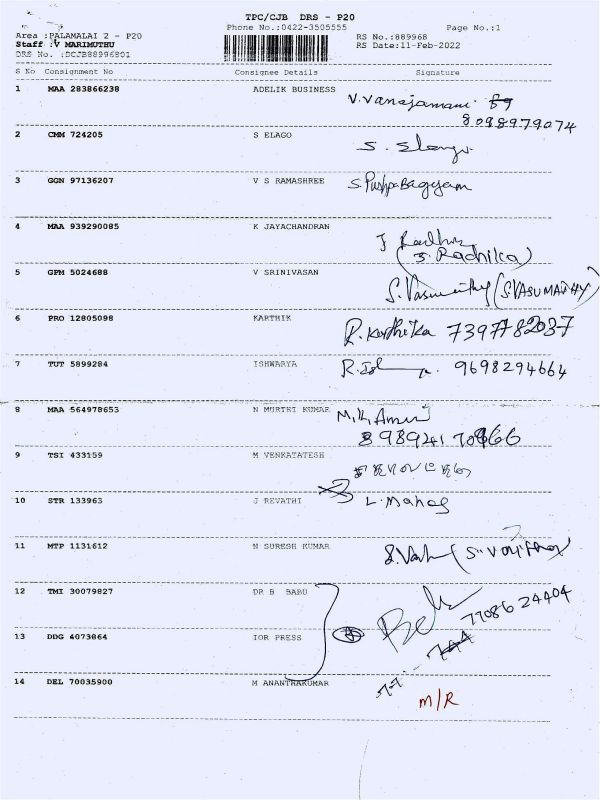 TPC/CJB DRS - P20
Phone No.:0422-3505555
Page No.:1
Area :PALAMALAI 2 - P20
RS No.:889968
Staff :V MARIMUTHU
RS Date:11-Feb-2022
DRS No. :DCJB88996801
S No Consignment No Consignee Details Signature
1 MAA 283866238 ADELIK BUSINESS V.Vanajamani
8098979074
2 CMM 724205 S ELAGO S. Elango
3 GGN 97136207 V S RAMASHREE S. Pushpa Bagyam
4 MAA 939290085 K JAYACHANDRAN J Radhika
(J. Radhika)
5 GPM 5024688 V SRINIVASAN S. Vasumathy (S.VASUMATHY)
6 PRO 12805098 KARTHIK R. Karthika 7397782037
7 TUT 5899284 ISHWARYA 9698294664
8 MAA 564978653 N MURTHI KUMAR
9 TSI 433159 M VENKATATESH
10 STR 133963 J REVATHI
11 MTP 1131612 N SURESH KUMAR
12 TMI 30079827 DR B BABU 7708624404
13 DDG 4073864 IOR PRESS
14 DEL 70035900 M ANANTHAKUMAR
M/R